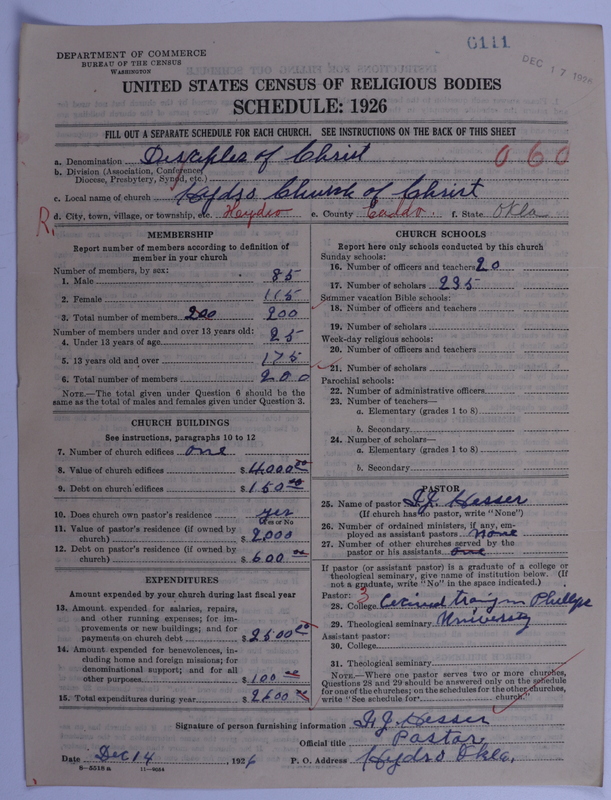 DEPARTMENT OF COMMERCE
BUREAU OF THE CENSUS
WASHINGTON
6111
DEC 17 1926
UNITED STATES CENSUS OF RELIGIOUS BODIES
SCHEDULE: 1926
FILL OUT A SEPARATE SCHEDULE FOR EACH CHURCH. SEE INSTRUCTIONS ON THE BACK OF THIS SHEET
a. Denomination Disciples of Christ 060
b. Division (Association, Conference, Diocese, Presbytery, Synod, etc.)
c. Local name of church Hydro Church of Christ
R. d. City, town, village, or township, etc. Hydro e. County Caddo f. State Okla
MEMBERSHIP
Report number of members according to definition of
member in your church
Number of members, by sex:
1. Male 85
2. Female 115
3. Total number of members 200 200
Number of members under and over 13 years old:
4. Under 13 years of age 25
5. 13 years old and over 175
6. Total number of members 200
NOTE.—The total given under Question 6 should be
same as the total of males and females given under Question 3.
CHURCH BUILDINGS
See instructions, paragraphs 10 to 12
7. Number of church edifices one
8. Value of church edifices $ 4000.00
9. Debt on church edifices $ 150.00
10. Does church own pastor's residence? yes
Yes or No
11. Value of pastor's residence (if owned by
church) $ 2000
12. Debt on pastor's residence (if owned by
church) $ 600.00
EXPENDITURES
Amount expended by your church during last fiscal year
13. Amount expended for salaries, repairs,
and other running expenses; for im-
provements or new buildings; and for
payments on church debt $ 2500.00
14. Amount expended for benevolences, in-
cluding home and foreign missions; for
denominational support; and for all
other purposes $ 100.00
15. Total expenditures during year $ 2600.00
CHURCH SCHOOLS
Report here only schools conducted by this church
Sunday schools:
16. Number of officers and teachers 20
17. Number of scholars 235
Summer vacation Bible schools:
18. Number of officers and teachers
19. Number of scholars
Week-day religious schools:
20. Number of officers and teachers
21. Number of scholars
Parochial schools:
22. Number of administrative officers
23. Number of teachers—
a. Elementary (grades 1 to 8)
b. Secondary
24. Number of scholars—
a. Elementary (grades 1 to 8)
b. Secondary
PASTOR
25. Name of pastor Hesser
(If church has no pastor, write "None")
26. Number of ordained ministers, if any, em-
ployed as assistant pastors none
27. Number of other churches served by the
pastor or his assistants one
If pastor (or assistant pastor) is a graduate of a college or
theological seminary, give name of institution below. (If
not a graduate, write "No" in the space indicated.)
Pastor: 3
28. College Phillips
29. Theological seminary University
Assistant pastor:
30. College
31. Theological seminary
NOTE.—Where one pastor serves two or more churches,
Questions 28 and 29 should be answered only on the schedule
for one of the churches; on the schedules for the other churches,
write "See schedule for church."
Signature of person furnishing information Hesser
Official title Pastor
Date Dec 14, 1926 P. O. Address Hydro Okla.
8—5518 a 11—9554